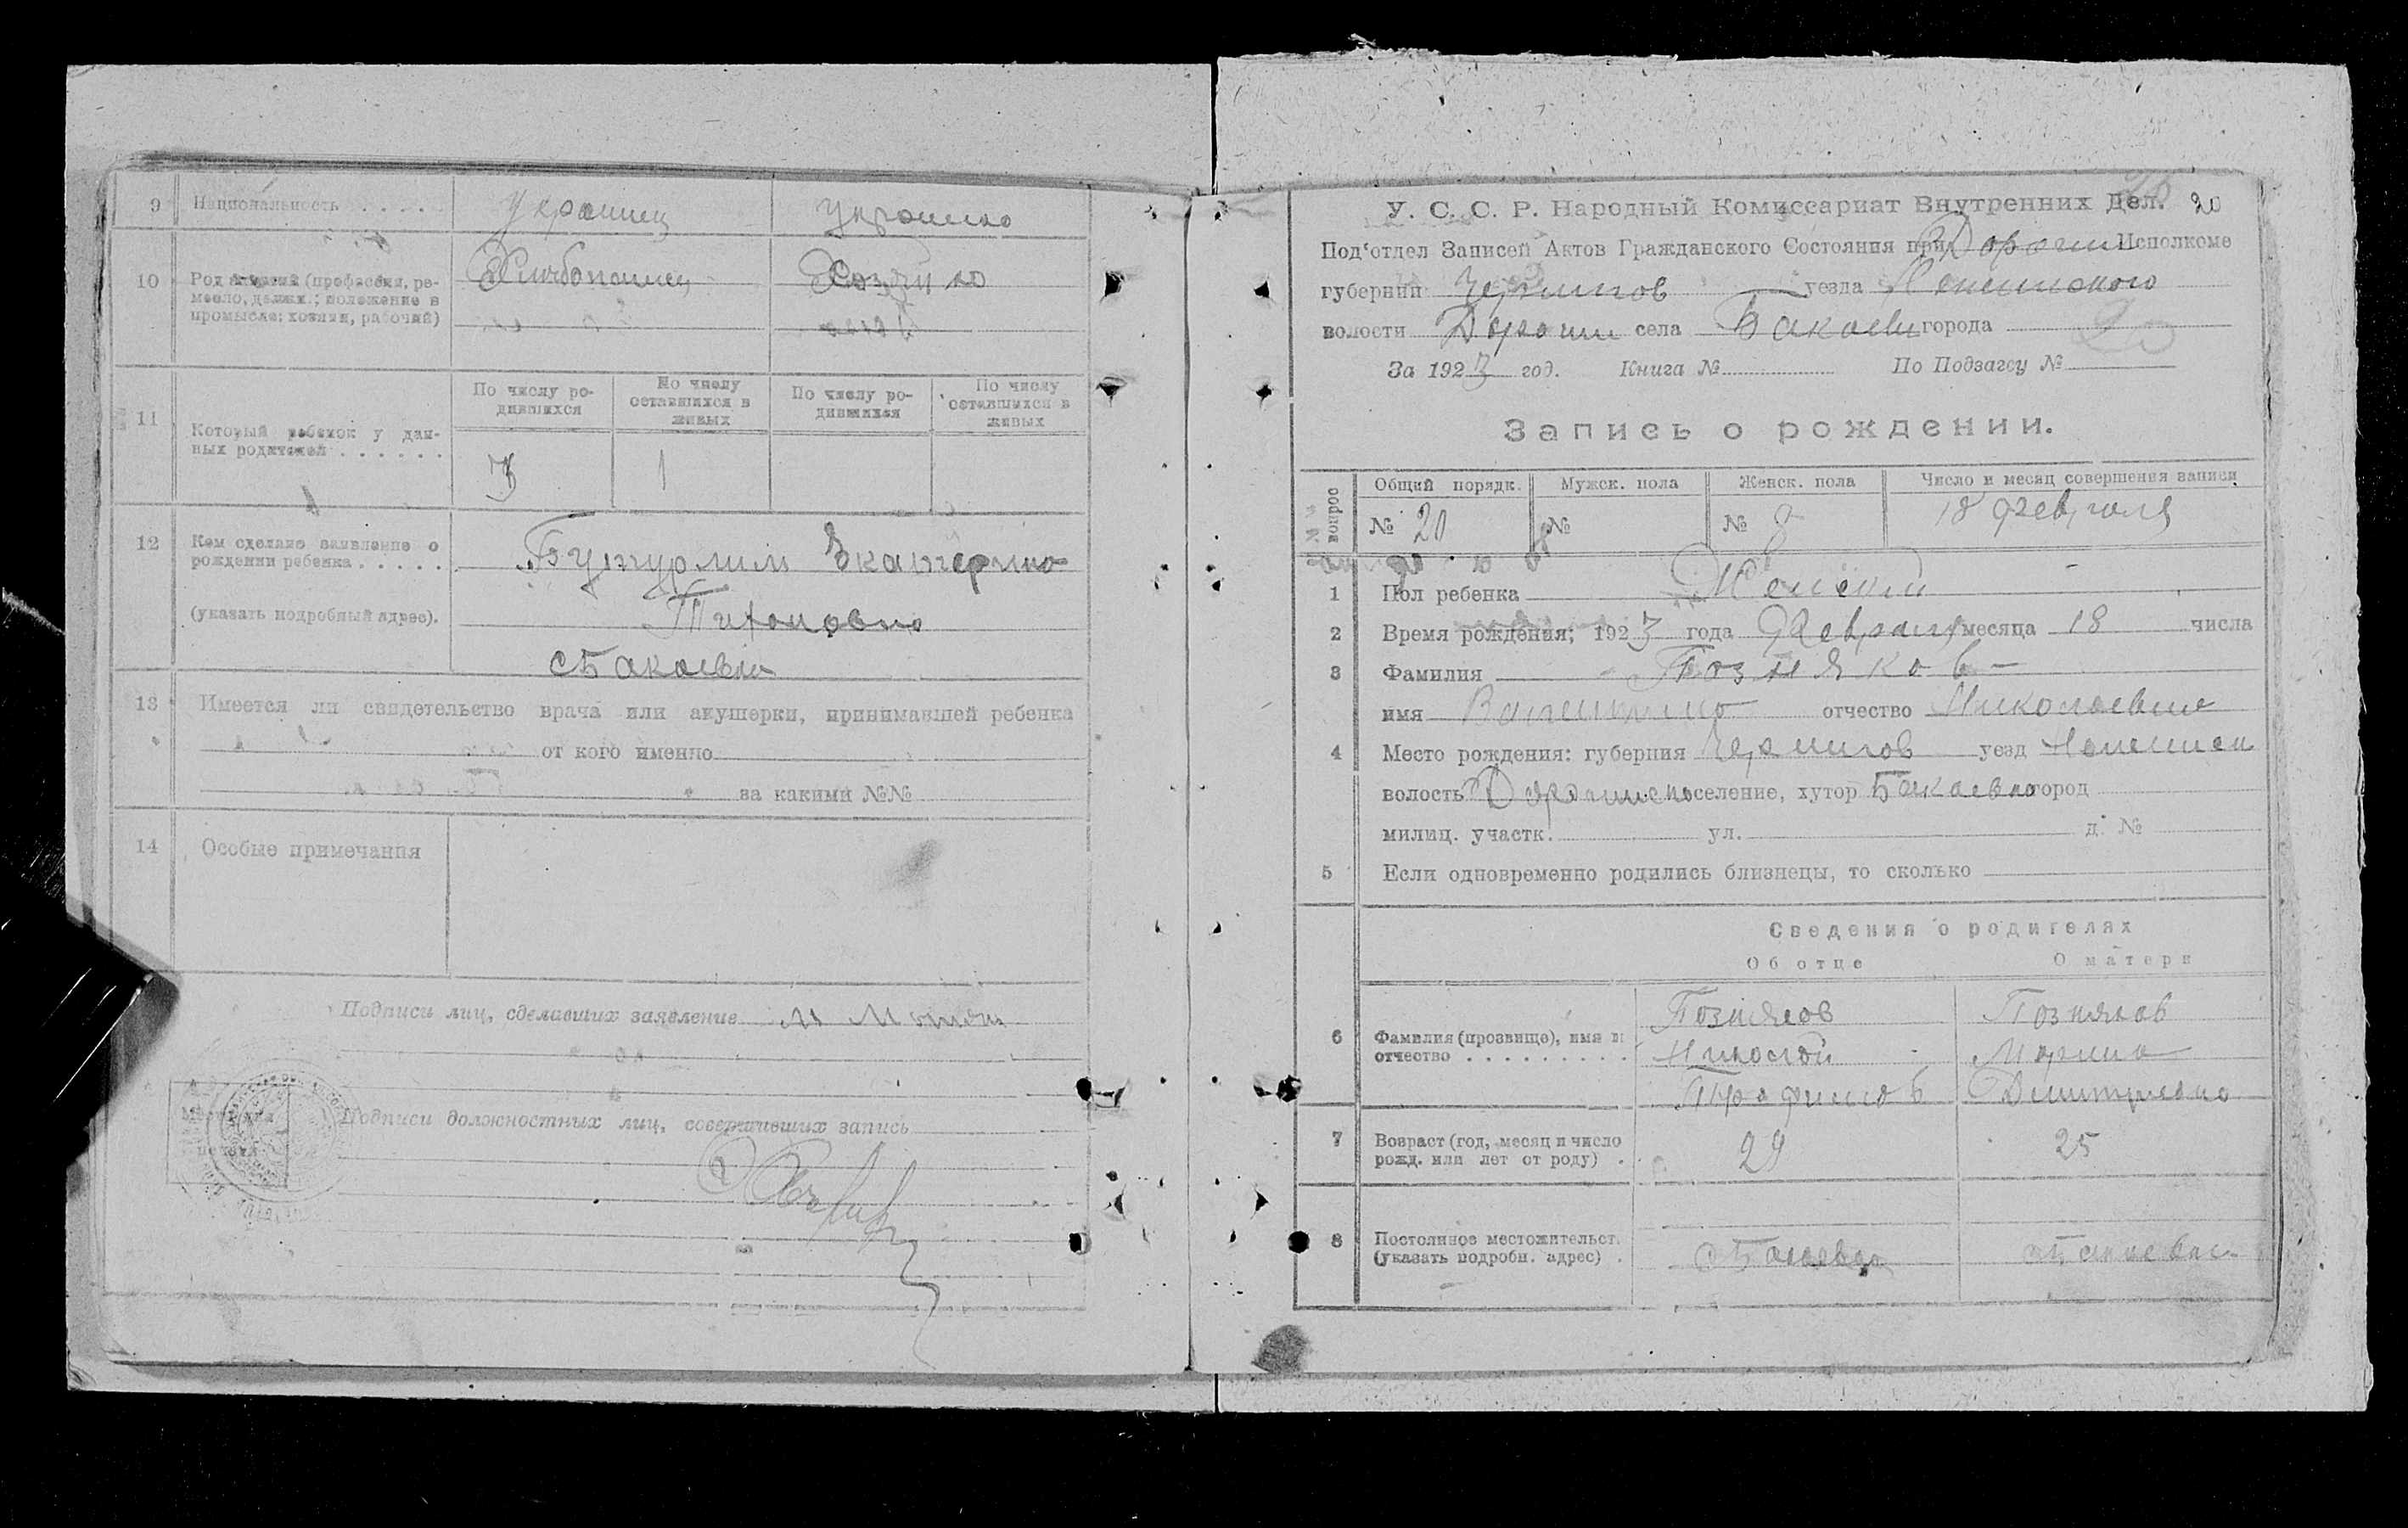 9 Национальность . . . . Украинец Украинка
10 Род занятий (профессия, ре-
месло, должн.; положение в
промысле: хозяин, рабочий)
Хлибопашец
11 Который ребенок у дан-
ных родителей . . . . . .
По числу ро-
дившихся
По числу
оставшихся в
живых
По числу ро-
дившихся
По числу
оставшихся в
живых
3 1
12 Кем сделано заявление о
рождении ребенка . . . . .
(указать подробный адрес).
Екатерина
Тихоновна
с Бакаевка
13 Имеется ли свидетельство врача или акушерки, принимавшей ребенка
от кого именно
за какими №№
14 Особые примечания
Подписи лиц, сделавших заявление
Место для
печати
Подписи должностных лиц, совершивших запись
У. С. С. Р. Народный Комиссариат Внутренних Дел. 20
Под'отдел Записей Актов Гражданского Состояния при Дорогин Исполкоме
губернии Чернигов уезда Нежинского
волости Дорогин села Бакаевк города
За 1923 год. Книга № По Подзагсу №
Запись о рождении.
№№ вопрос
Общий порядк. Мужск. пола Женск. пола Число и месяц совершения записи
№ 20 № № 18 февраля
1 Пол ребенка Женский
2 Время рождения; 1923 года Февраля месяца 18 числа
3 Фамилия Позняков
имя Валентина отчество Николаевна
4 Место рождения: губерния Чернигов уезд Нежинск
волость Дорогинск поселение, хутор Бакаевка город
милиц. участк. ул. д. №
5 Если одновременно родились близнецы, то сколько
Сведения о родителях
Об отце О матери
6 Фамилия (прозвище), имя и
отчество . . . . . . . . .
Позняков
Николай
Трофимов
Позняков
Марина
Димитриевна
7 Возраст (год, месяц и число
рожд. или лет от роду) . .
29 25
8 Постоянное местожительст.
(указать подробн. адрес) .
с Бакаевка с Бакаевка